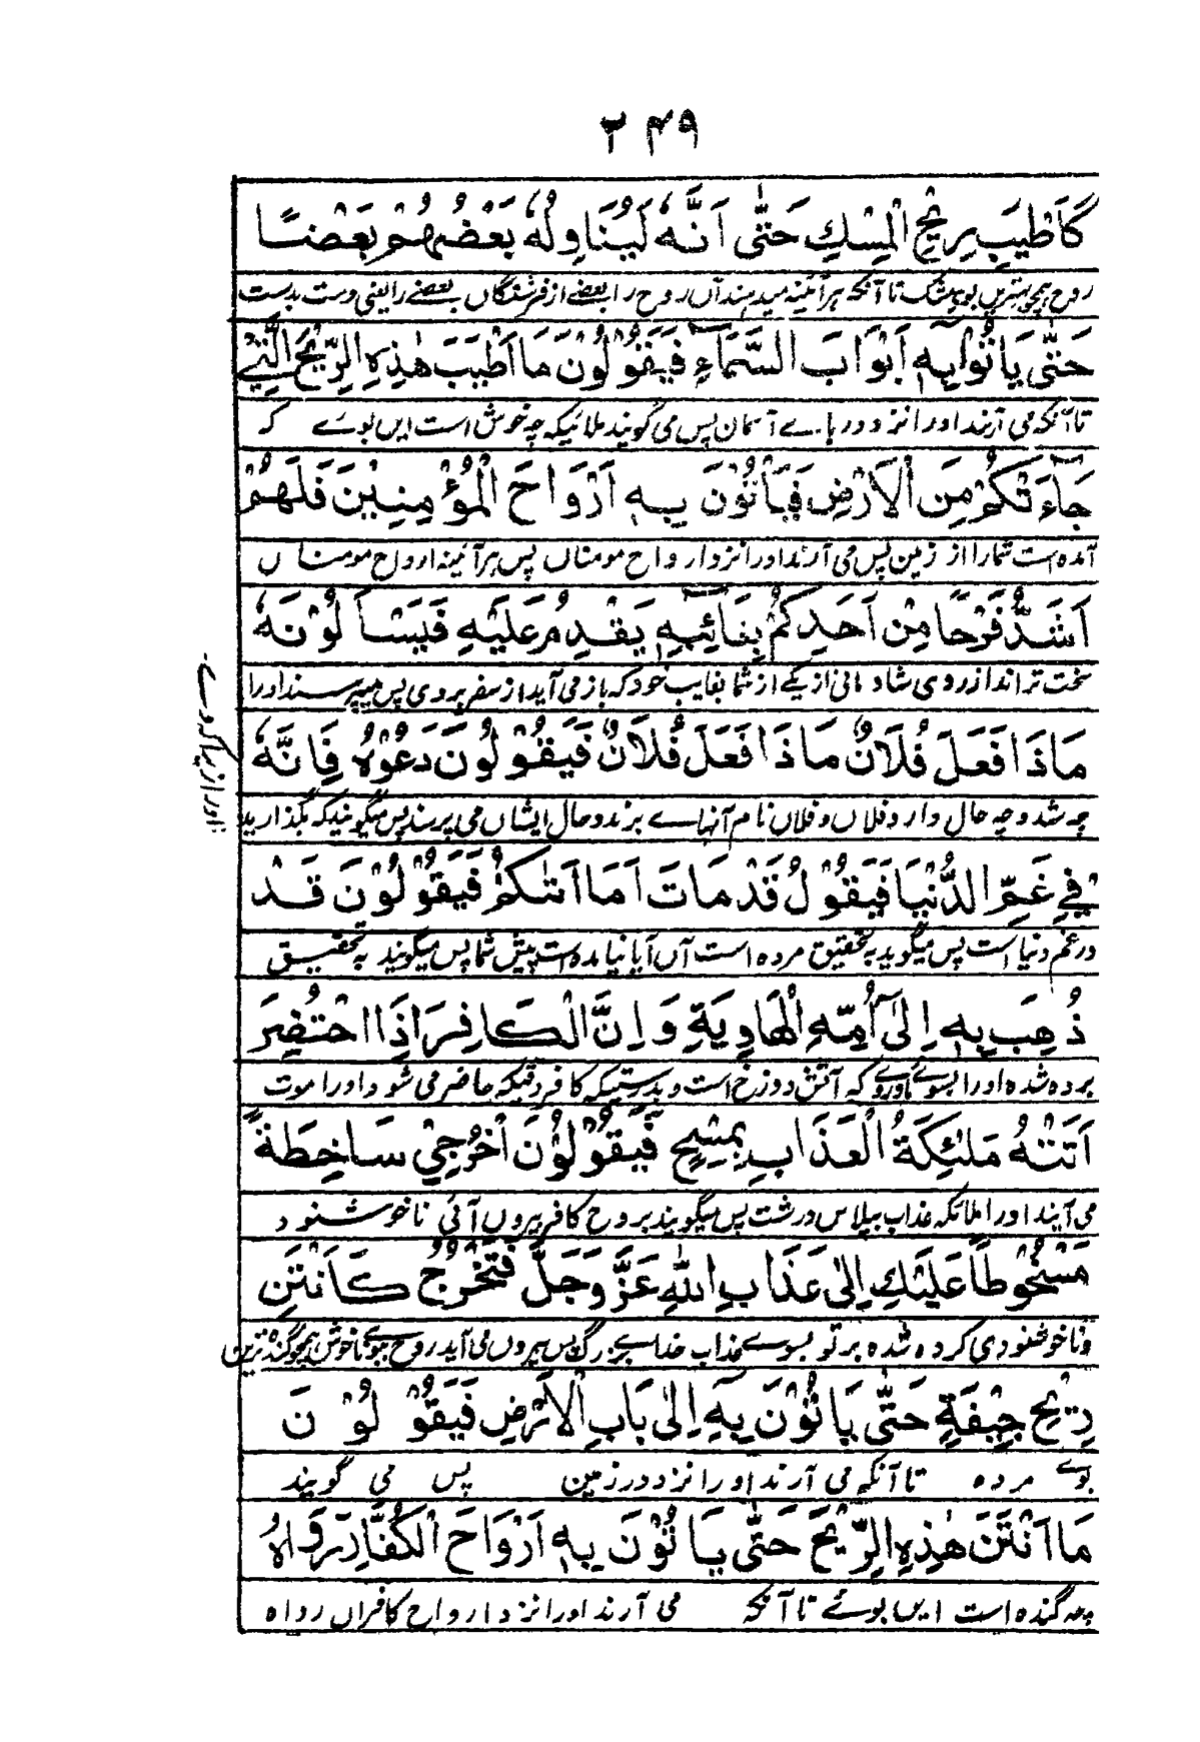 ۲۴۹
كَاَطْيَبِ رِيْحِ الْمِسْكِ حَتّٰى اَنَّهٗ لَيُنَاوِلُهٗ بَعْضُهُمْ بَعْضًا
روح ہمچو بہترین بوی مشک تا آنکہ ہر آئینہ میدہند آں روح را بعضے از فرشتگاں بعضے را یعنی دست بدست
حَتّٰى يَاْتُوْا بِهٖ اَبْوَابَ السَّمَآءِ فَيَقُوْلُوْنَ مَا اَطْيَبَ هٰذِهِ الرِّيْحَ الَّتِيْ
تا آنکہ می آرند اورا نزد در ہاے آسمان پس می گویند ملائیکہ چہ خوش است ایں بوے کہ
جَآءَتْكُمْ مِنَ الْاَرْضِ فَيَاْتُوْنَ بِهٖ اَرْوَاحَ الْمُؤْمِنِيْنَ فَلَهُمْ
آمدہ است شمارا از زمین پس می آرند اورا نزد ارواح مومناں پس ہر آئینہ ارواح مومناں
اَشَدُّ فَرْحًا مِنْ اَحَدِكُمْ بِغَائِبِهٖ يَقْدِمُ عَلَيْهِ فَيَسْاَلُوْنَهٗ
سخت تر اند از روی شادمانی از یکے از شما بغایب خود کہ باز می آید از سفر بر وی پس میپرسند اورا
مَاذَا فَعَلَ فُلَانٌ مَاذَا فَعَلَ فُلَانٌ فَيَقُوْلُوْنَ دَعُوْهُ فَاِنَّهٗ
چہ شد و چہ حال دارد فلاں و فلاں نام آنہاے برند و حال ایشاں می پرسند پس میگویند کہ بگذارید
فِيْ غَمِّ الدُّنْيَا فَيَقُوْلُ قَدْ مَاتَ اَمَا اَتٰىكُمْ فَيَقُوْلُوْنَ قَدْ
در غم دنیا است پس میگوید بہ تحقیق مردہ است آں آیا نیامدہ است پیش شما پس میگویند بہ تحقیق
ذُهِبَ بِهٖ اِلٰى اُمِّهِ الْهَاوِيَةِ وَاِنَّ الْكَافِرَ اِذَا احْتُضِرَ
بردہ شدہ اورا بسوے مادر وے کہ آتش دوزخ است و بدرستیکہ کافر وقتیکہ حاضر می شود اورا موت
اَتَتْهُ مَلٰئِكَةُ الْعَذَابِ بِمِسْحٍ فَيَقُوْلُوْنَ اُخْرُجِيْ سَاخِطَةً
می آیند اورا ملائکہ عذاب بپلاس درشت پس میگویند بروح کافر بیروں آئی ناخوشنود
مَسْخُوْطًا عَلَيْكِ اِلٰى عَذَابِ اللّٰهِ عَزَّ وَجَلَّ فَتَخْرُجُ كَاَنْتَنِ
و ناخوشنودی کردہ شدہ بر تو بسوے عذاب خداے بزرگ پس بیروں می آید روح ببوے ناخوش ہمچو گندہ ترین
رِيْحِ جِيْفَةٍ حَتّٰى يَاْتُوْنَ بِهٖ اِلٰى بَابِ الْاَرْضِ فَيَقُوْلُوْنَ
بوے مردہ تا آنکہ می آرند اورا نزد در زمین پس می گویند
مَا اَنْتَنَ هٰذِهِ الرِّيْحَ حَتّٰى يَاْتُوْنَ بِهٖ اَرْوَاحَ الْكُفَّارِ رَوَاهُ
چہ گندہ است ایں بوئے تا آنکہ می آرند اورا نزد ارواح کافراں رواہ